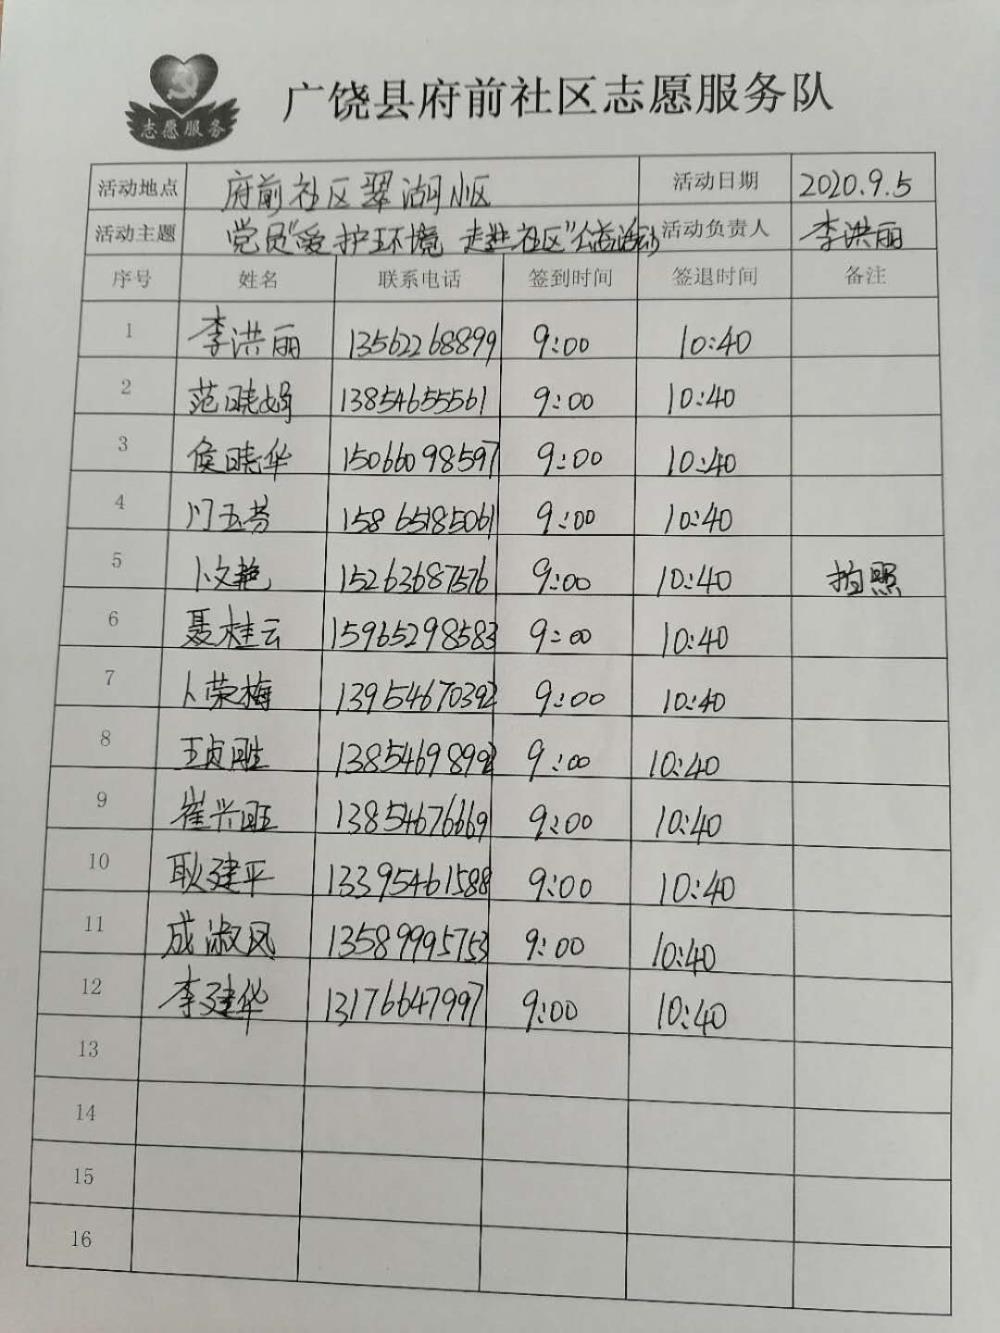 志愿服务
广饶县府前社区志愿服务队
活动地点 府前社区翠湖小区 活动日期 2020.9.5
活动主题 党员"爱护环境 走进社区"公益活动 活动负责人 李洪丽
序号 姓名 联系电话 签到时间 签退时间 备注
1 李洪丽 13562268899 9:00 10:40
2 范晓娟 13854655561 9:00 10:40
3 侯晓华 15066098597 9:00 10:40
4 门玉芬 15865185061 9:00 10:40
5 卜文艳 15263687576 9:00 10:40 拍照
6 聂桂云 15965298583 9:00 10:40
7 卜荣梅 13954670392 9:00 10:40
8 王贞胜 13854698992 9:00 10:40
9 崔兴旺 13854676669 9:00 10:40
10 耿建平 13395461588 9:00 10:40
11 成淑风 13589995753 9:00 10:40
12 李建华 13176647997 9:00 10:40
13
14
15
16